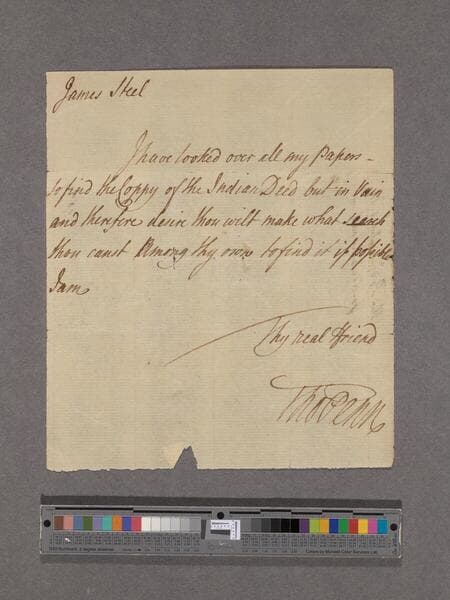 James Steel
I have looked over all my Papers
to find the Coppy of the Indian Deed but in Vain
and therefore desire thou wilt make what search
thou canst Among thy own to find it if possible
I am
Thy real ffriend
Tho Penn